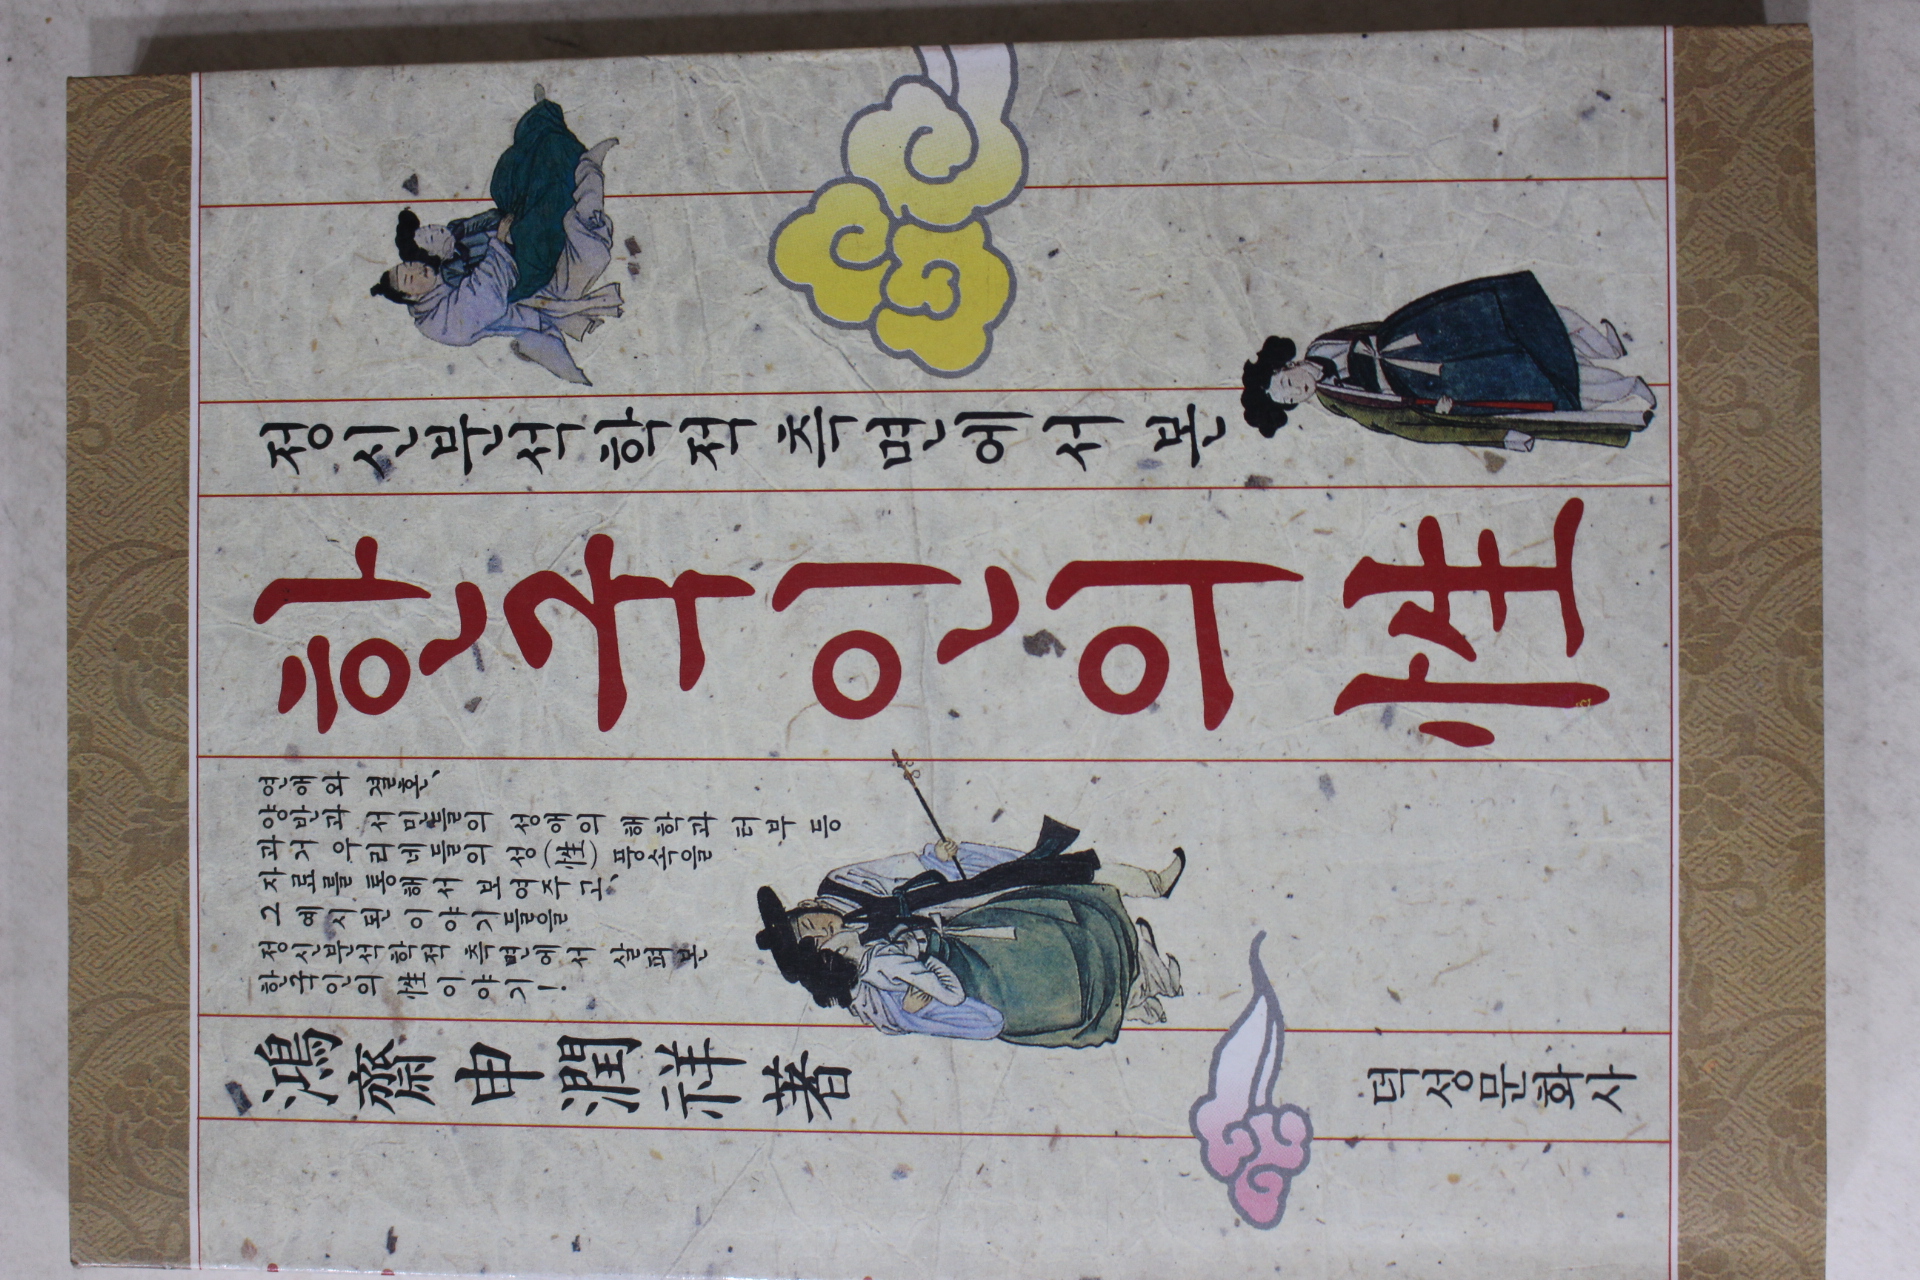 정신분석학적 측면에서 본
한국인의 性
연애와 결혼,
양반과 서민들의 성애의 해학과 터부 등
과거 우리네들의 성(性) 풍속을
자료를 통해서 보여주고,
그 예시된 이야기들을
정신분석학적 측면에서 살펴본
한국인의 性 이야기!
鴻齋 申潤祥 著
덕성문화사